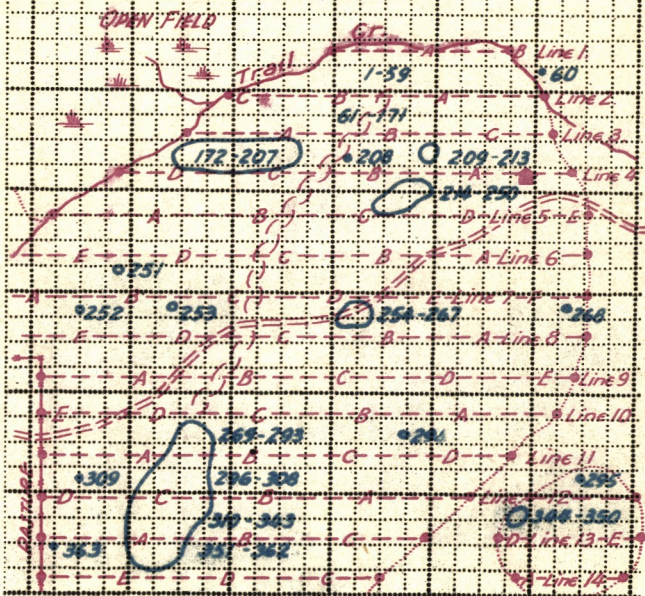 OPEN FIELD
Cr.
A B Line 1
Trail
1-59
60
C B A Line 2
61-171
A B C Line 3
172-207
208
209-213
D C B A Line 4
214-250
A B C D Line 5 E
E D C B A Line 6
251
A B C D E Line 7 F
252
253
254-267
268
E D C B A Line 8
A B C D E Line 9
E D C B A Line 10
269-293
294
A B C D Line 11
309
296-308
295
D C B A Line 12
310-343
344-350
PASTURE
A B C D Line 13 E
363
351-362
E D C F Line 14